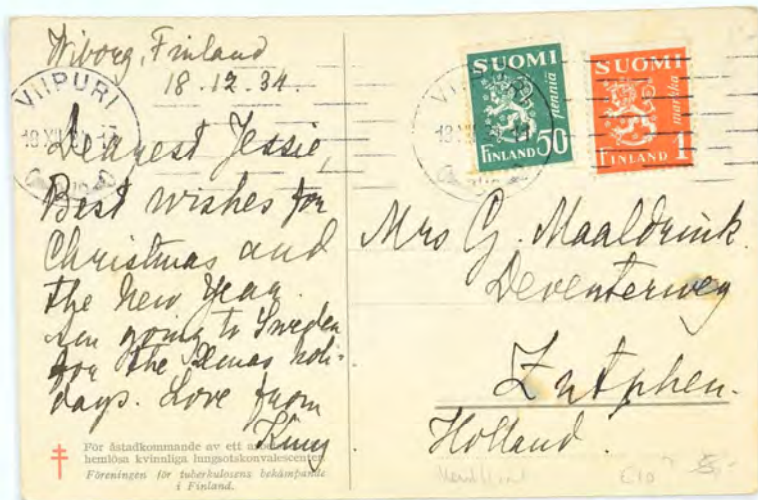 Wiborg, Finland
18.12.34.
Dearest Jessie,
Best wishes for
Christmas and
the New Year.
Am going to Sweden
for the Xmas holi-
days. Love from
VIIPURI
18 XII
För åstadkommande av ett
hemlösa kvinnliga lungsotskonvalescenter.
Föreningen för tuberkulosens bekämpande
i Finland.
VIIPURI
18 XII
SUOMI
pennia
FINLAND 50
SUOMI
markka
FINLAND 1
Mrs G. Maaldrink.
Deventerweg
Zutphen.
Holland.
€10